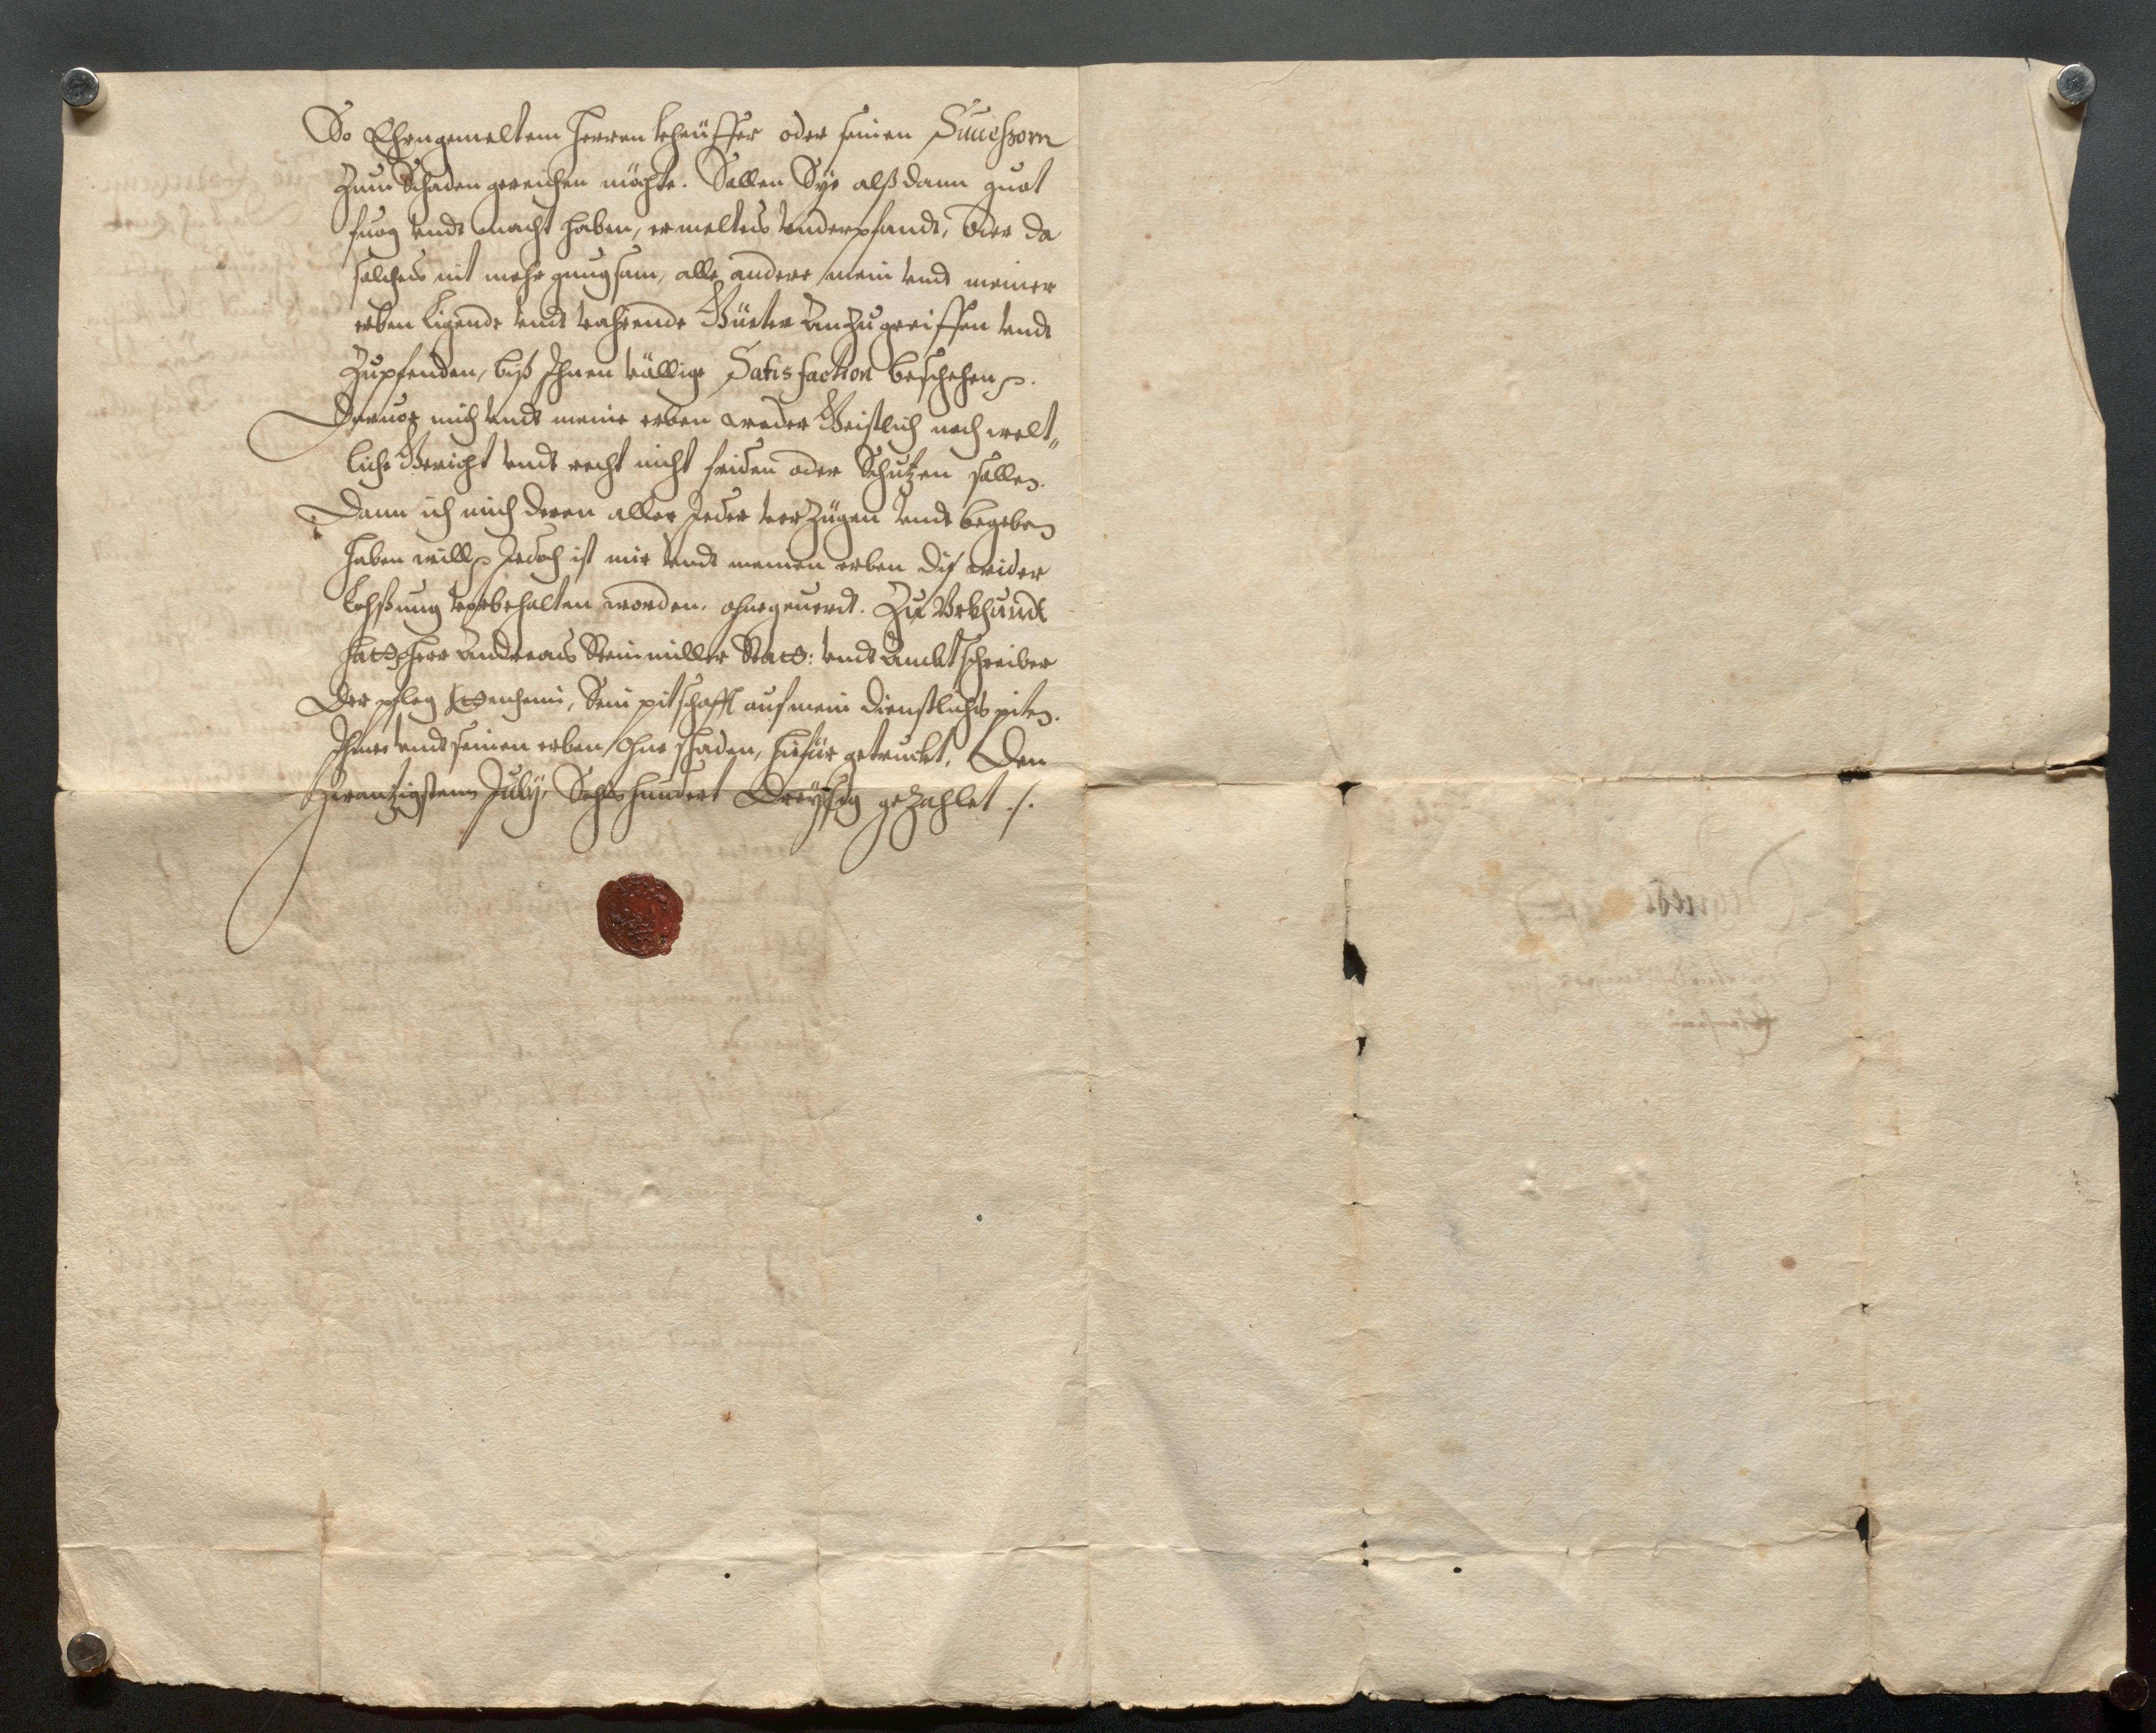 So Ehrngemeltem Herren kheüffer oder seinen Successorn
Zum Schaden gereichen möchte. Sollen Sye alßdann guot
fuog vndt macht haben, ermeltes vnderpfandt, Oder da
solches nit mehr gnugsam, alle andere mein vnd meiner
erben Ligende vndt vahrende Güeter Anzugreiffen vndt
Zupfenden, biß Ihnen völlige Satisfaction beschehen.
Daruor mich vndt meine erben weder Geistlich noch welt„
liche Gericht vndt recht nicht friden oder Schutzen sollen.
Dann ich mich deren aller Jeder verzügen vndt begeben
haben will. Jedoch ist mir vndt meinen erben die wider
Lohßung vorbehalten worden, ohngeuerdt. Zu Vrkhundt
hatt Herr Andreas Steinmiller Statt: vndt Ambtschreiber
Der pfleg, Sein pitschafft auf mein dienstliches piten.
Ihme vndt seinen erben Ohne schaden, hiefür getruckt, Den
Zwantzigsten July, Sechshundert Dreyssig gezahlet ./.